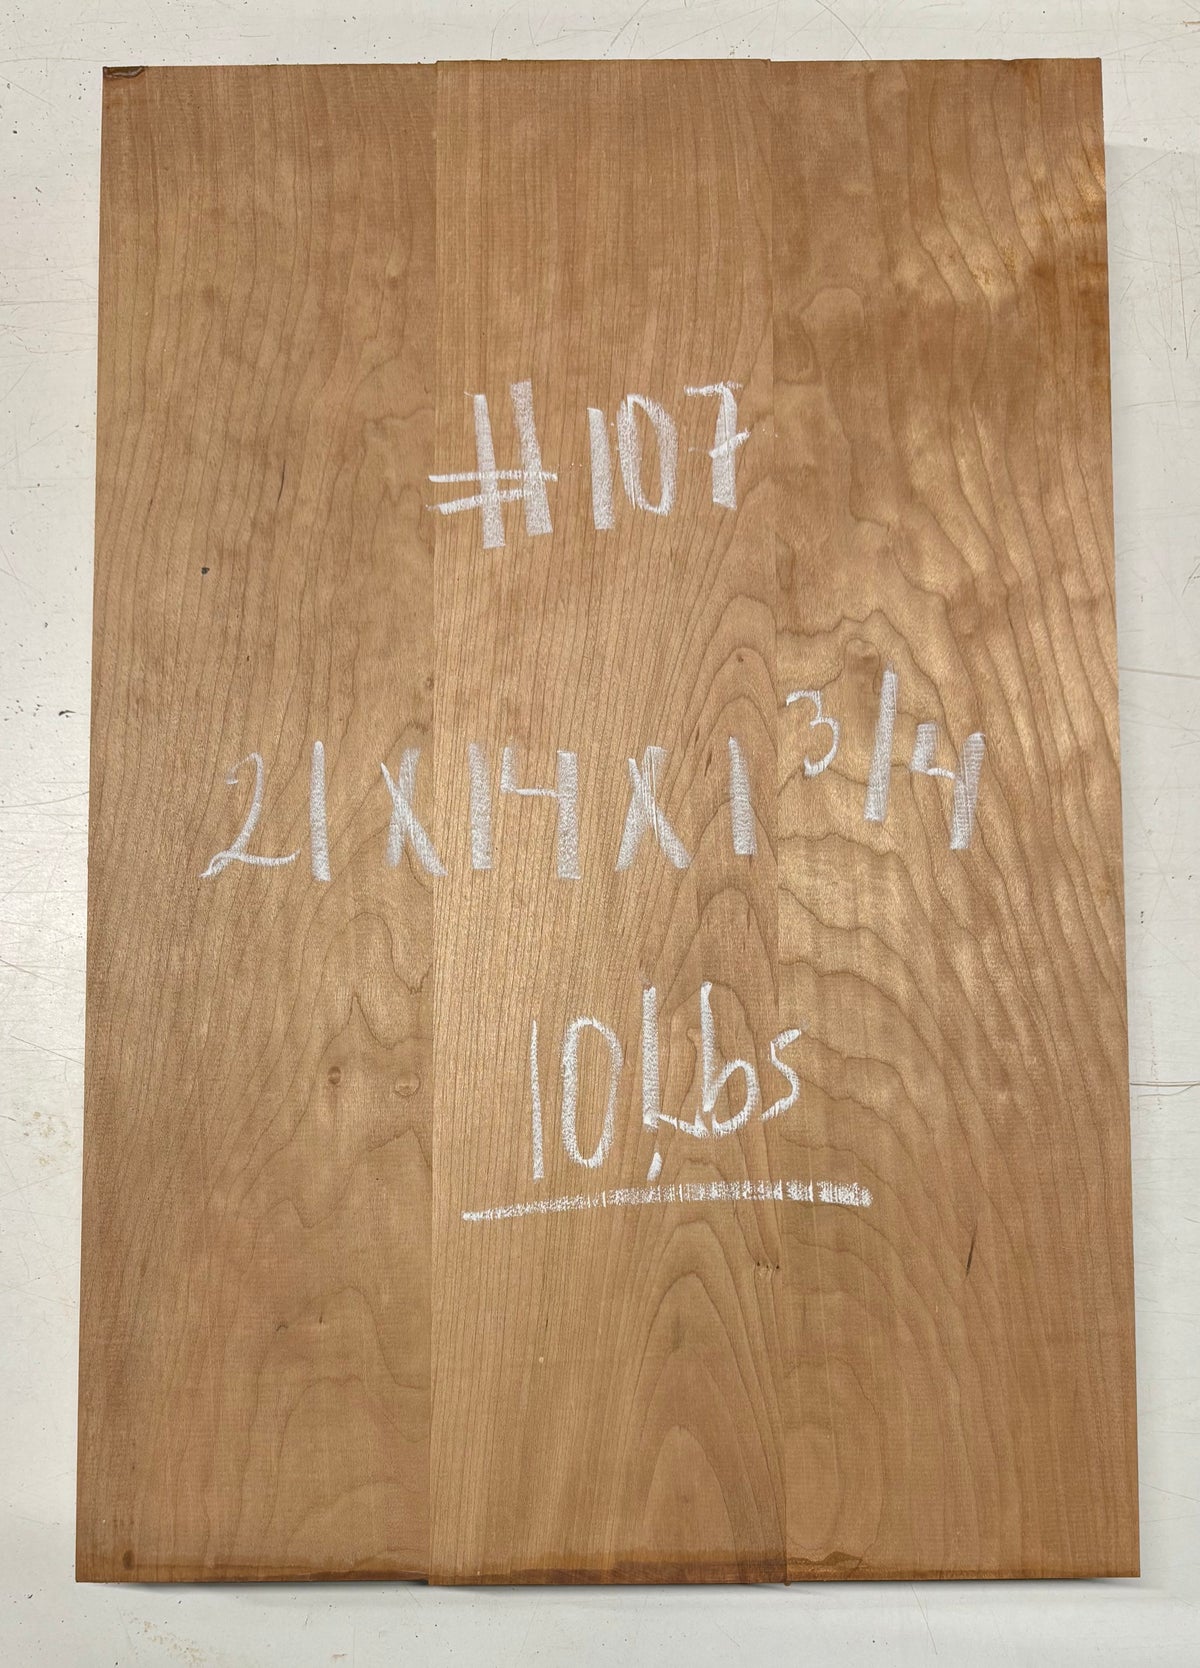 #107
21 X 14 X 1 3/4
10 Lbs